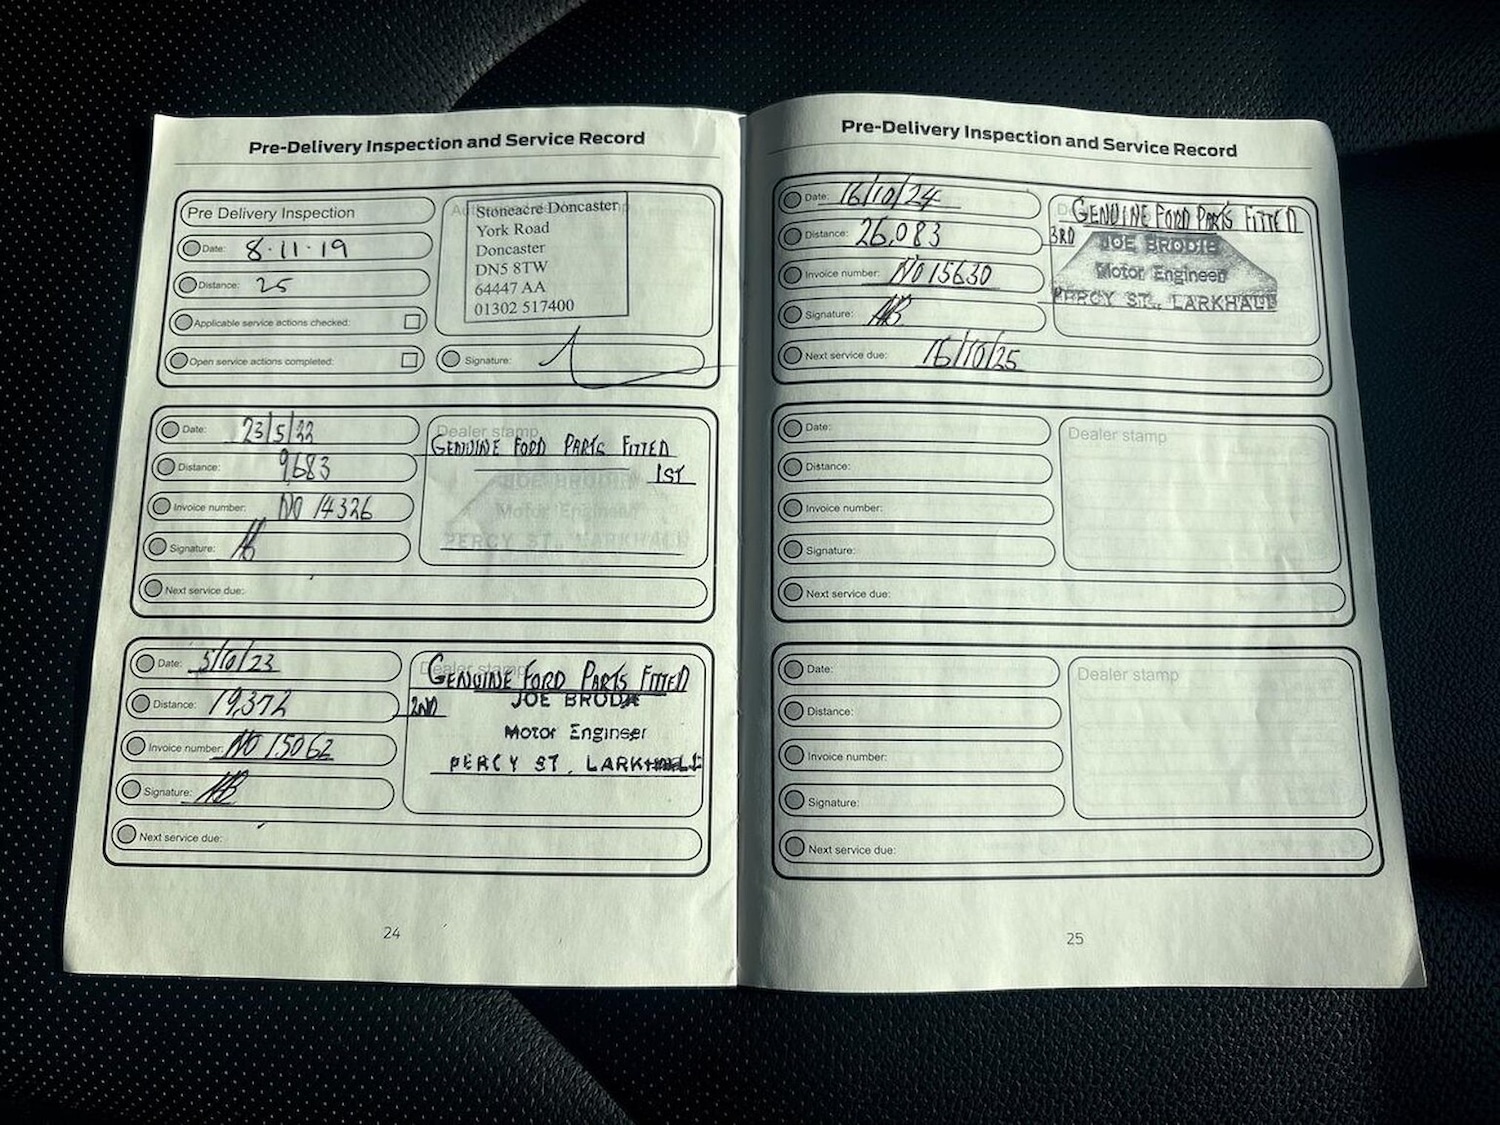 Pre-Delivery Inspection and Service Record
Pre Delivery Inspection
Date: 8·11·19
Distance: 25
Applicable service actions checked:
Open service actions completed:
Stoneacre Doncaster
York Road
Doncaster
DN5 8TW
64447 AA
01302 517400
Signature:
Date: 23/5/22
Distance: 9,683
Invoice number: NO 14326
Signature:
Next service due:
Dealer stamp
GENUINE FORD PARTS FITTED
1ST
JOE BRODIE
Motor Engineer
PERCY ST., LARKHALL
Date: 5/10/23
Distance: 19,372
Invoice number: NO 15062
Signature:
Next service due:
Dealer stamp
GENUINE FORD PARTS FITTED
2ND
JOE BRODIE
Motor Engineer
PERCY ST., LARKHALL
24
Pre-Delivery Inspection and Service Record
Date: 16/10/24
Distance: 26,083
Invoice number: NO 15630
Signature:
Next service due: 16/10/25
GENUINE FORD PARTS FITTED
3RD
JOE BRODIE
Motor Engineer
PERCY ST., LARKHALL
Date:
Distance:
Invoice number:
Signature:
Next service due:
Dealer stamp
Date:
Distance:
Invoice number:
Signature:
Next service due:
Dealer stamp
25